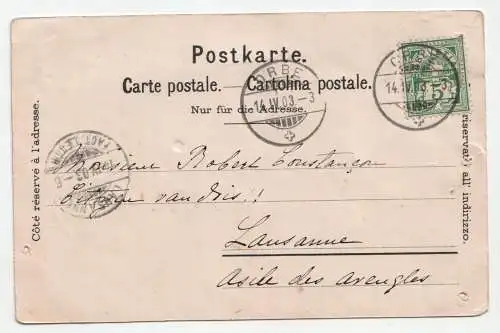 Postkarte.
Carte postale. Cartolina postale.
Nur für die Adresse.
Côté réservé à l'adresse.
riservato all' indirizzo.
ORBE
14.IV.03.-3
ORBE
14.IV.03.-3
5
LAUSANNE
Monsieur Robert Constançon
Citoyen vaudois!!
Lausanne
Asile des aveugles